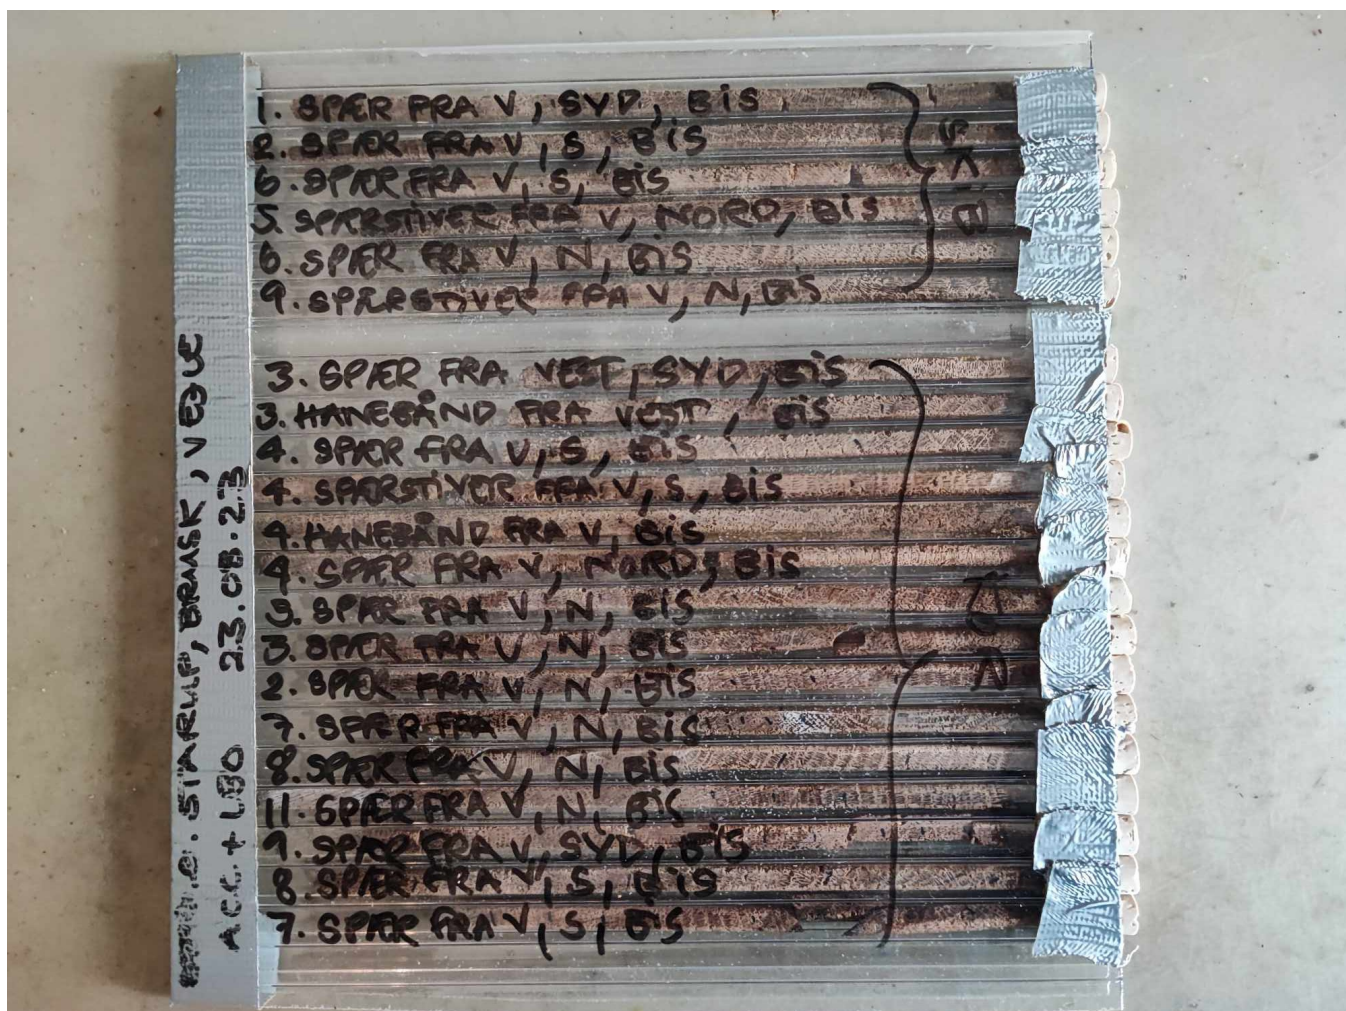 1. SPÆR FRA V, SYD, BIS
2. SPÆR FRA V, S, BIS
6. SPÆR FRA V, S, BIS
5. SPÆRSTIVER FRA V, NORD, BIS
6. SPÆR FRA V, N, BIS
9. SPÆRSTIVER FRA V, N, BIS
3. SPÆR FRA VEST, SYD, BIS
3. HANEBÅND FRA VEST, BIS
4. SPÆR FRA V, S, BIS
4. SPÆRSTIVER FRA V, S, BIS
4. HANEBÅND FRA V, BIS
4. SPÆR FRA V, NORD, BIS
5. SPÆR FRA V, N, BIS
3. SPÆR FRA V, N, BIS
2. SPÆR FRA V, N, BIS
7. SPÆR FRA V, N, BIS
8. SPÆR FRA V, N, BIS
11. SPÆR FRA V, N, BIS
9. SPÆR FRA V, SYD, BIS
8. SPÆR FRA V, S, BIS
7. SPÆR FRA V, S, BIS
STARUP, BRAASK, VEJLE
ACC. + LBO 23.08.23